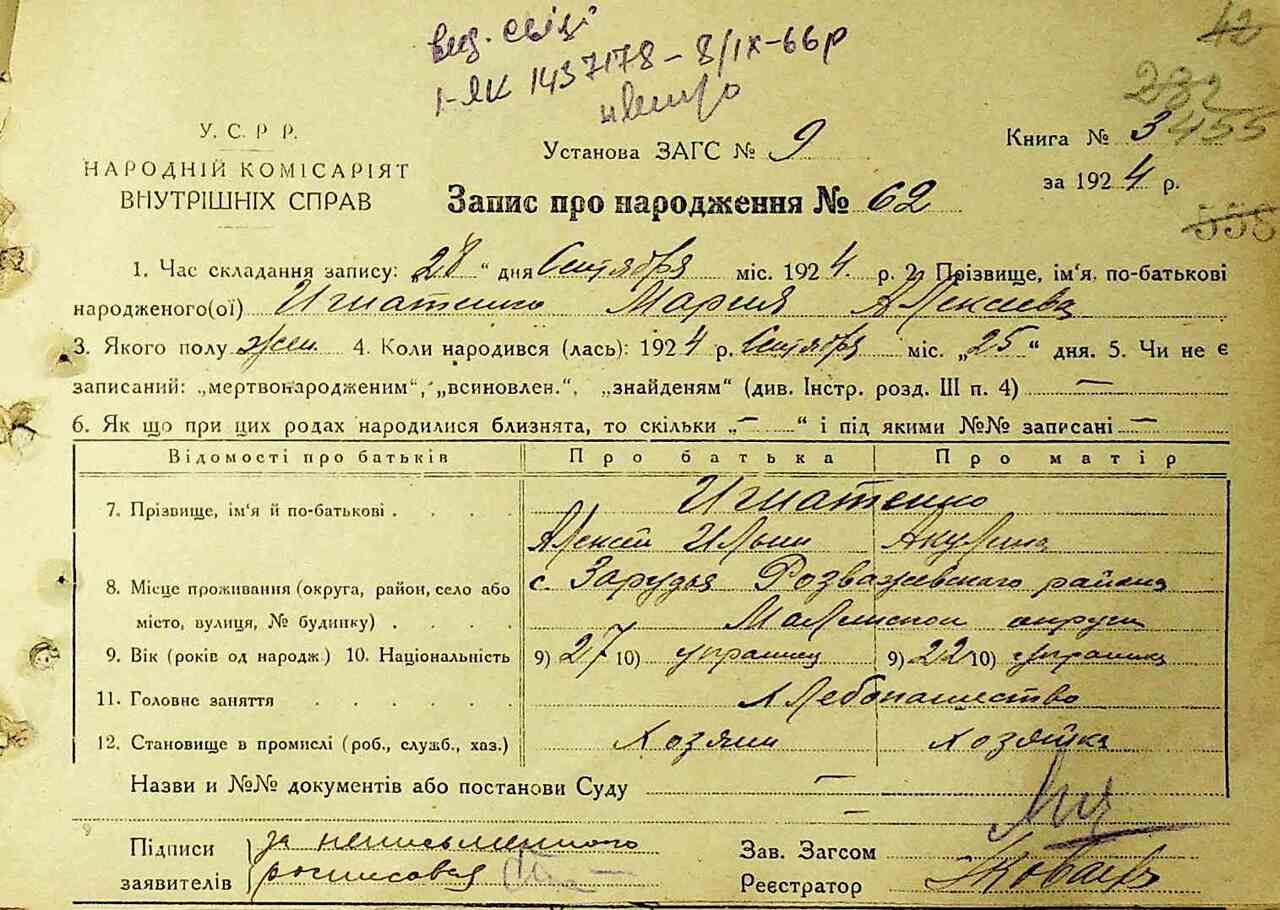 вид. свід
І-ЯК 1437178 – 8/IX-66р
42
282
455
У. С. Р Р.
НАРОДНІЙ КОМІСАРІЯТ
ВНУТРІШНІХ СПРАВ
Установа ЗАГС № 9
Книга № 3
за 1924 р.
Запис про народження № 62
558
1. Час складання запису: „28“ дня Сентября міс. 1924. р. 2. Прізвище, ім'я, по-батькові
народженого(ої) Игнатенко Мария Алексеева
3. Якого полу жен 4. Коли народився (лась): 1924 р. Сентября міс. „25“ дня. 5. Чи не є
записаний: „мертвонародженим“, „всиновлен.“, „знайденям“ (див. Інстр. розд. III п. 4) —
6. Як що при цих родах народилися близнята, то скільки „—“ і під якими №№ записані —
Відомості про батьків Про батька Про матір
7. Прізвище, ім'я й по-батькові . . . . Игнатенко
Алексей Ильин Акулина
8. Місце проживання (округа, район, село або с. Зарудья Розважевского района
місто, вулиця, № будинку) . . . . Малинской округи
9. Вік (років од народж.) 10. Національність 9) 27 10) украинец 9) 22 10) украинка
11. Головне заняття . . . . . . Хлебопашество
12. Становище в промислі (роб., служб., хаз.) Хозяин Хозяйка
Назви и №№ документів або постанови Суду —
—
Підписи за неписьменного
заявителів росписовая
Зав. Загсом
Реєстратор